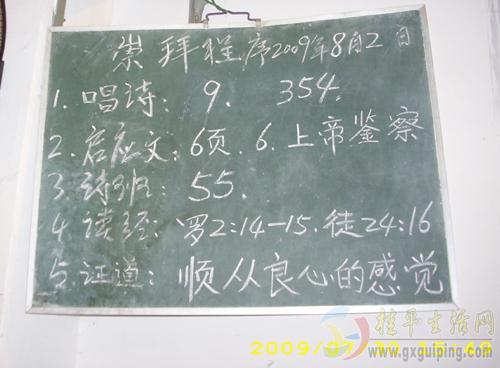 崇拜程序2009年8月2日
1. 唱诗: 9. 354.
2. 启应文: 6页. 6. 上帝鉴察
3. 诗班: 55.
4. 读经: 罗2:14-15. 徒24:16
5. 证道: 顺从良心的感觉
桂平生活网
www.gxguiping.com